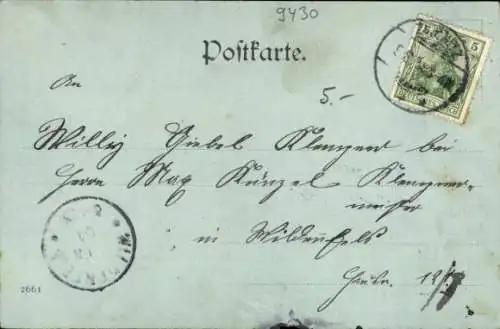 9430
Postkarte.
5
An
5.-
Willy Giebel Klempner bei
Herrn Max Künzel Klempner-
meister
in Wildenfels
2661